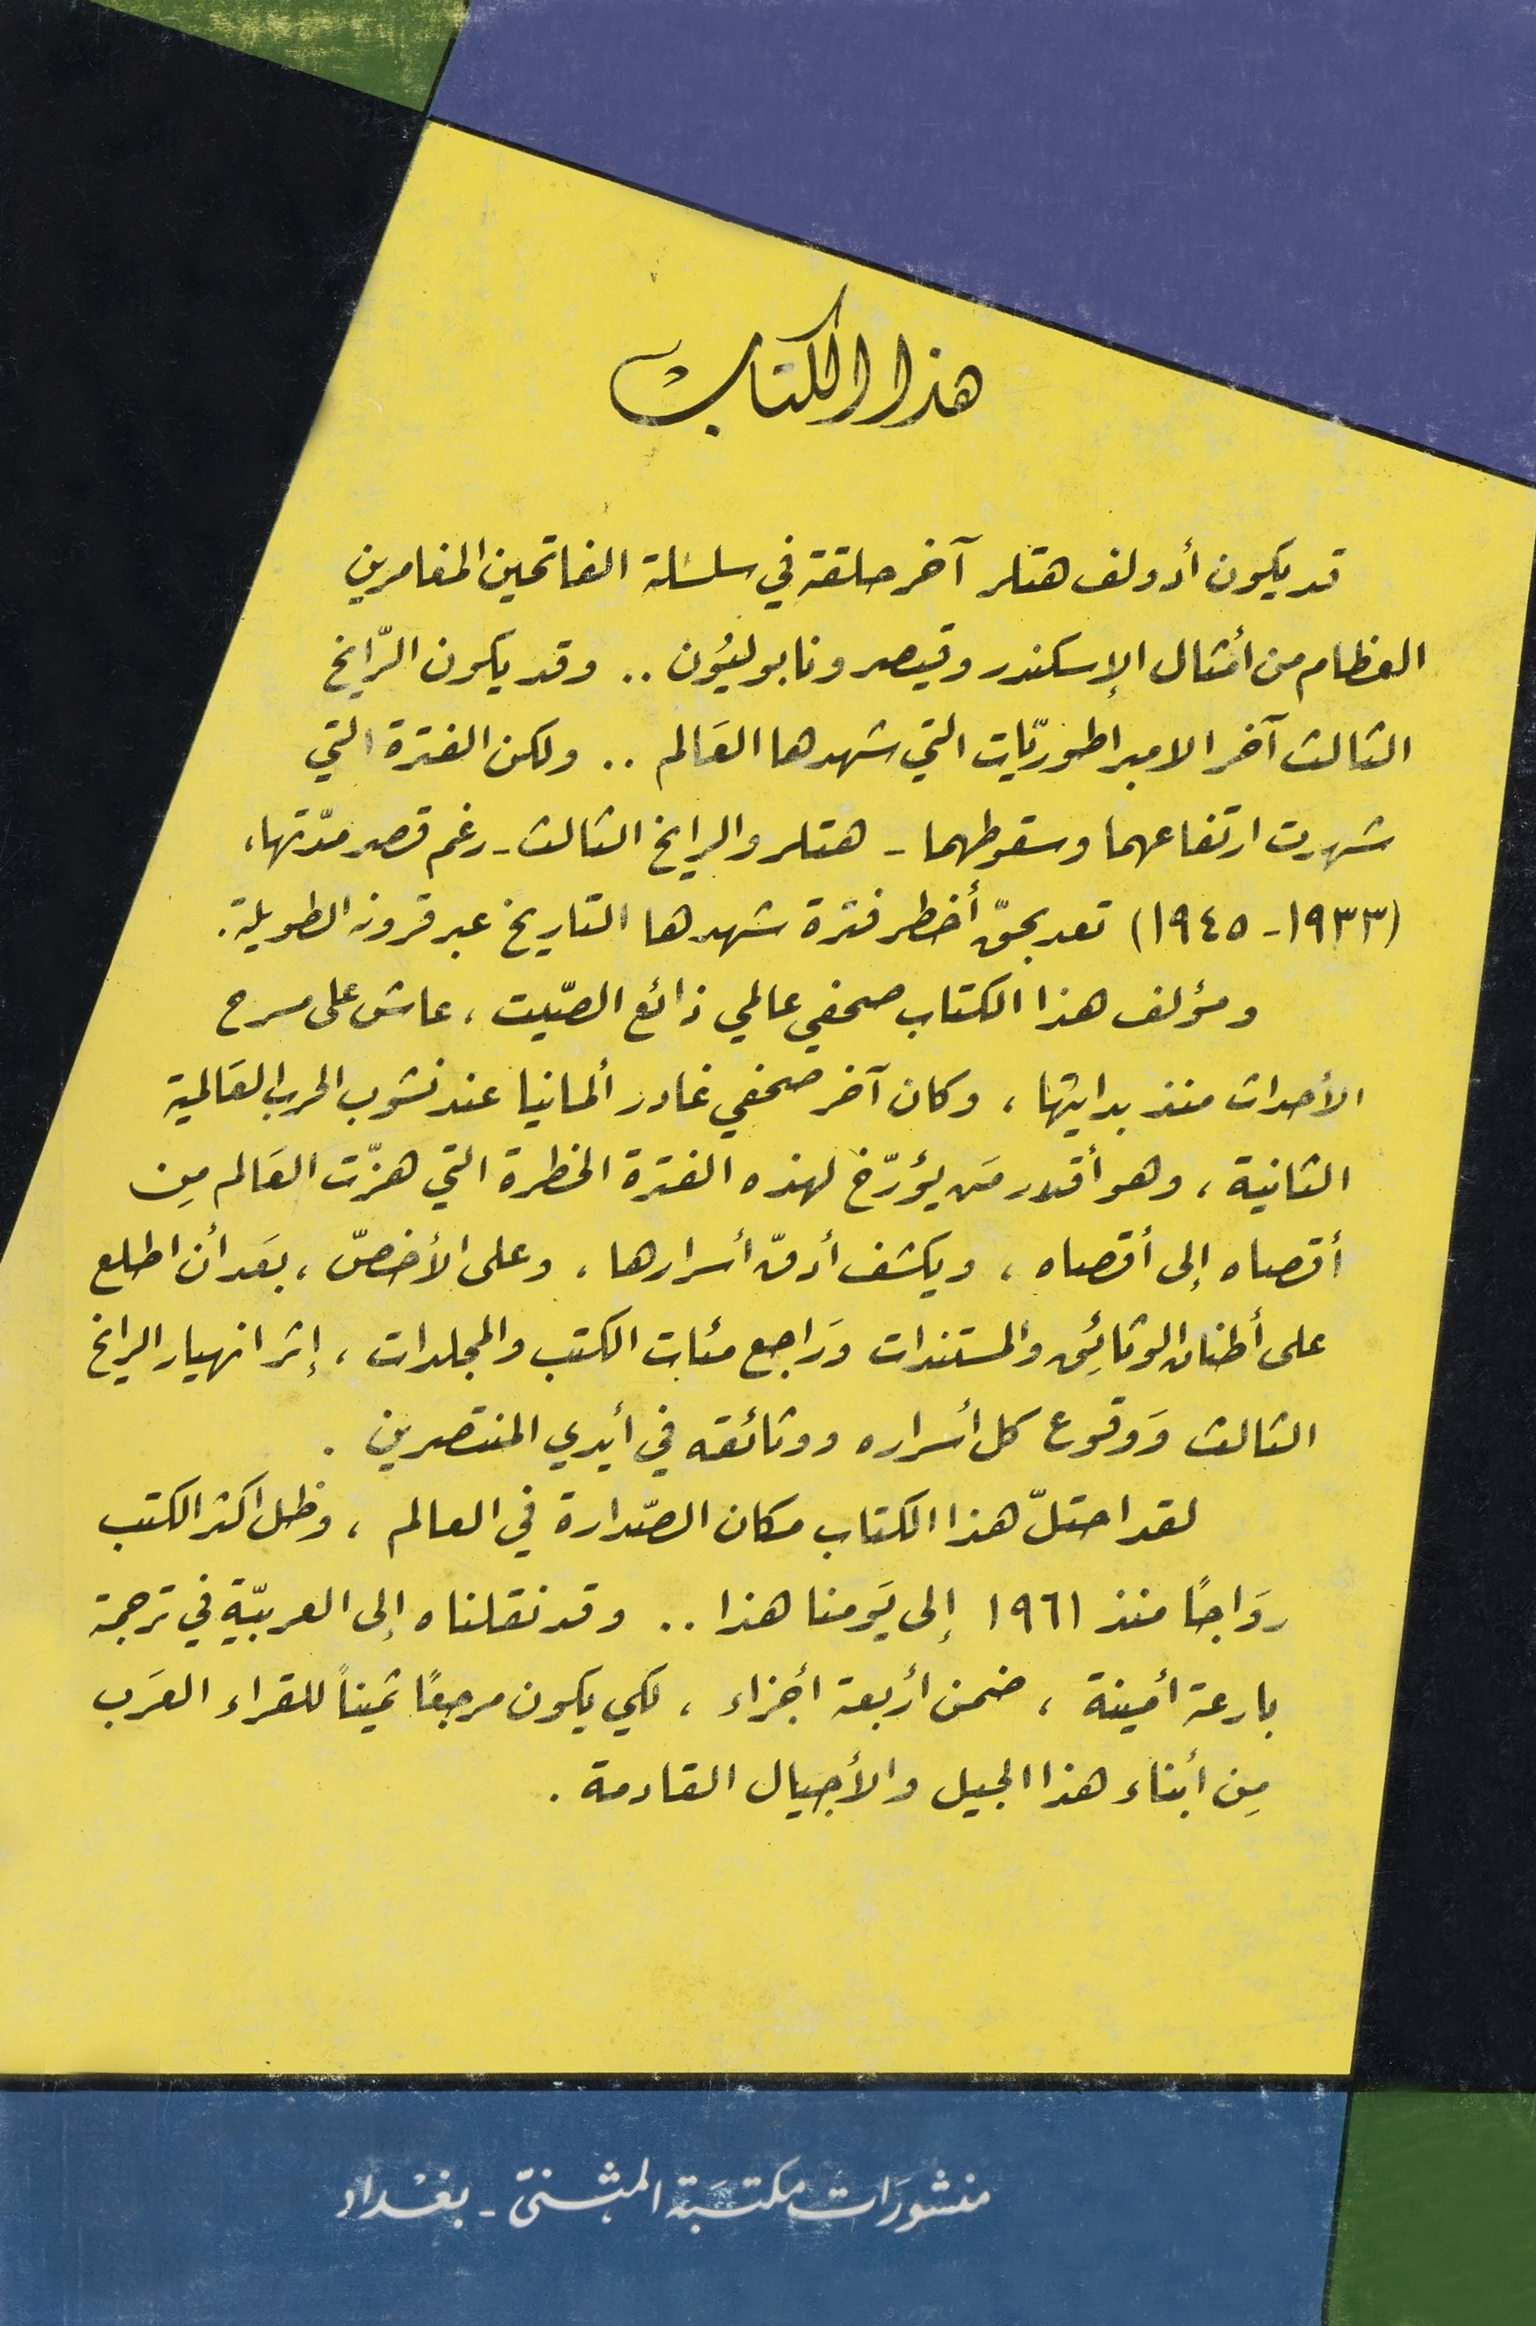 هذا الكتاب
قد يكون أدولف هتلر آخر حلقة في سلسلة الفاتحين المغامرين
العظام من أمثال الإسكندر وقيصر ونابوليؤن .. وقد يكون الرّايخ
الثالث آخر الامبراطوريّات التي شهدها العَالم .. ولكن الفترة التي
شهدت ارتفاعهما وسقوطهما - هتلر والرايخ الثالث - رغم قصر مدّتها،
(١٩٣٣ - ١٩٤٥) تعد بحقّ أخطر فترة شهدها التاريخ عبر قرونه الطويلة.
ومؤلف هذا الكتاب صحفي عالمي ذائع الصّيت، عاش على مسرح
الأحداث منذ بدايتها، وكان آخر صحفي غادر ألمانيا عند نشوب الحرب العَالمية
الثانية، وهو أقدر مَن يؤرّخ لهذه الفترة الخطرة التي هزّت العَالم مِن
أقصاه إلى أقصاه، ويكشف أدقّ أسرارها، وعلى الأخصّ، بعَد أن اطلع
على أطنان الوثائِق والمستندات وَراجع مئات الكتب والمجلدات، إثر انهيار الرايخ
الثالث وَوقوع كل أسراره ووثائقه في أيدي المنتصرين .
لقد احتلّ هذا الكتاب مكان الصّدارة في العالم، وظل اكثر الكتب
روَاجًا منذ ١٩٦١ إلى يَومنا هذا .. وقد نقلناه إلى العربيّة في ترجمة
بارعة أمينة، ضمن أربعة أجزاء، لكي يكون مرجعًا ثمَيناً للقراء العرَب
مِن أبناء هذا الجيل والأجيال القادمة .
منشورَات مكتبَة المثنىّ - بغْداد